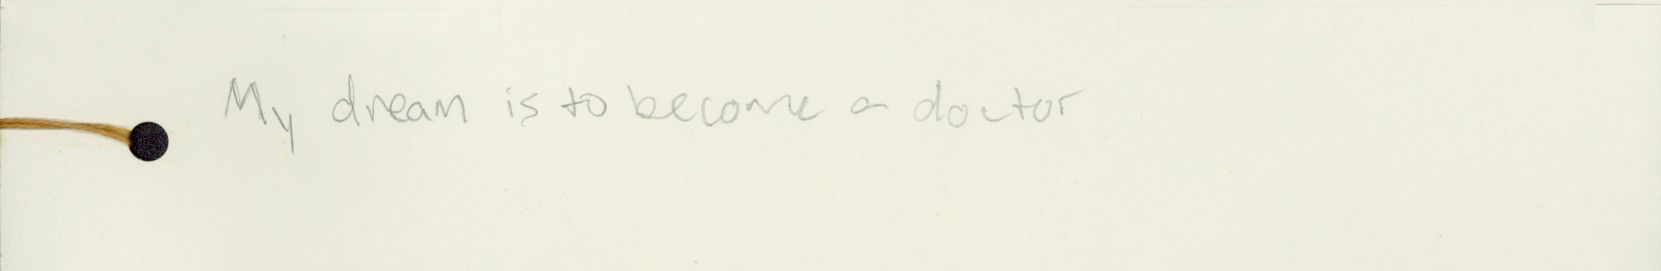 My dream is to become a doctor